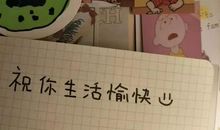 祝你生活愉快